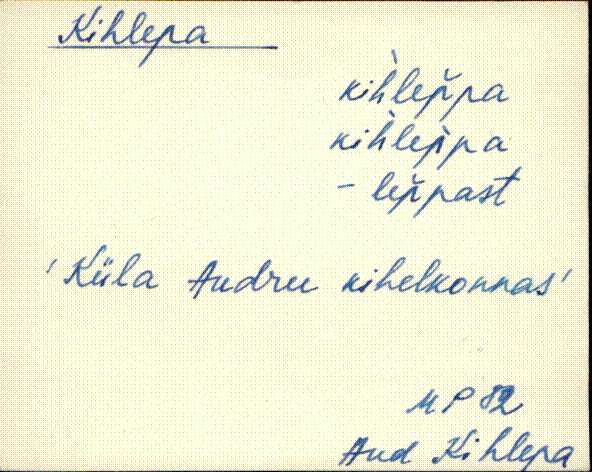 Kihlepa
kìhlep̆pa
kìhlep̀pa
- lep̆past
'Küla Audru kihelkonnas'
MP 82
Aud Kihlepa